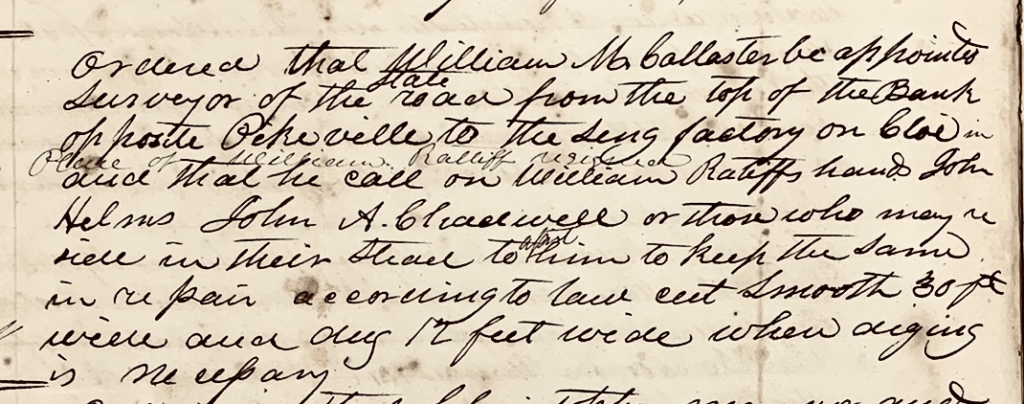 Ordered that William McCallaster be appointed
State
Surveyor of the road from the top of the Bank
opposite Pikeville to the Seng factory on Cloe in
place of William Ratliff resigned
and that he call on William Ratliffs hands John
Helms John A. Chadwell or those who may re
side in their Stead to asist him to keep the Same
in repair according to law cut Smooth 30 ft
wide and dug 12 feet wide when diging
is necessary